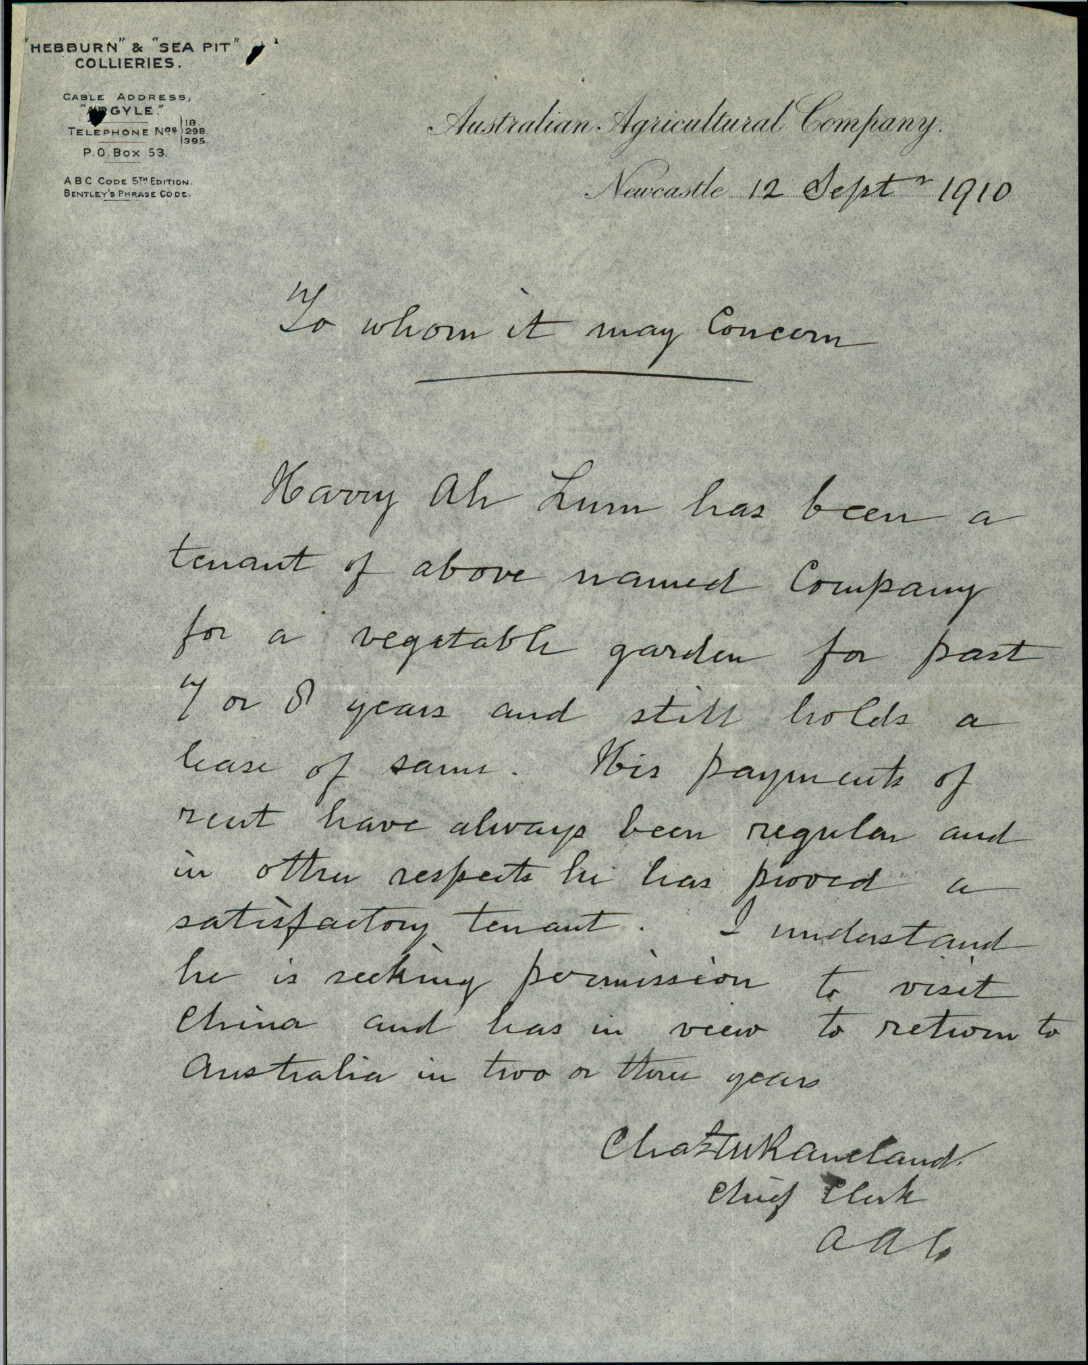 "HEBBURN" & "SEA PIT"
COLLIERIES.
CABLE ADDRESS,
"ARGYLE."
TELEPHONE Nos 18
298
395
P.O. BOX 53.
A B C CODE 5TH EDITION.
BENTLEY'S PHRASE CODE.
Australian Agricultural Company.
Newcastle 12 Septr 1910
To whom it may Concern
Harry Ah Lum has been a
tenant of above named Company
for a vegetable garden for past
7 or 8 years and still holds a
lease of same. His payments of
rent have always been regular and
in other respects he has proved a
satisfactory tenant. I understand
he is seeking permission to visit
China and has in view to return to
Australia in two or three years
Chief Clerk
A A Co